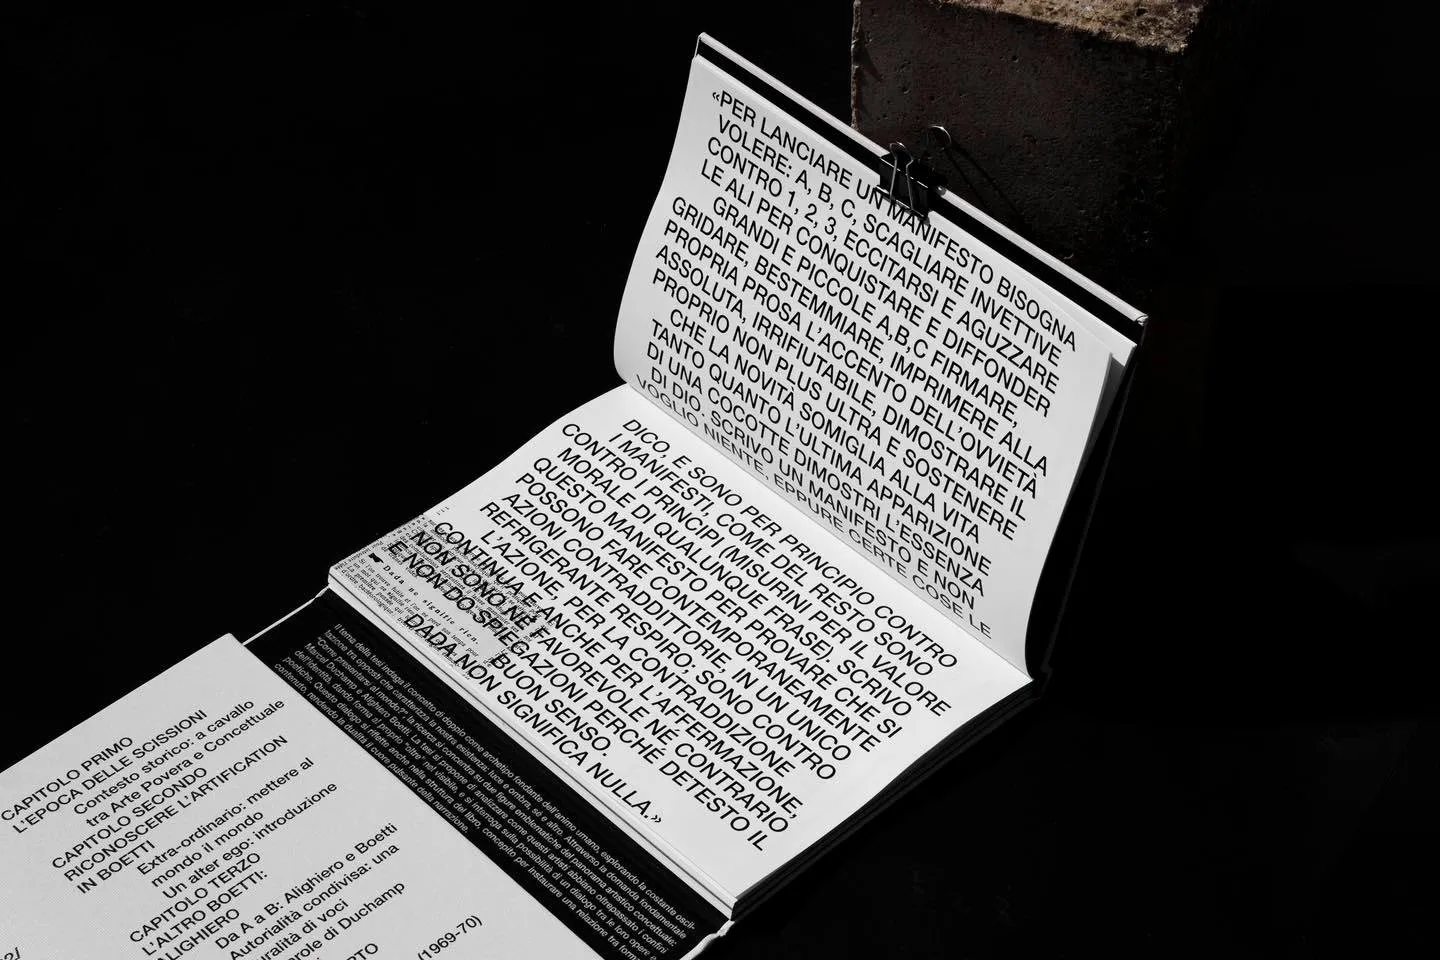 «PER LANCIARE UN MANIFESTO BISOGNA
VOLERE: A, B, C, SCAGLIARE INVETTIVE
CONTRO 1, 2, 3, ECCITARSI E AGUZZARE
LE ALI PER CONQUISTARE E DIFFONDER
GRANDI E PICCOLE A,B,C FIRMARE,
GRIDARE, BESTEMMIARE, IMPRIMERE ALLA
PROPRIA PROSA L'ACCENTO DELL'OVVIETÀ
ASSOLUTA, IRRIFIUTABILE, DIMOSTRARE IL
PROPRIO NON PLUS ULTRA E SOSTENERE
CHE LA NOVITÀ SOMIGLIA ALLA VITA
TANTO QUANTO L'ULTIMA APPARIZIONE
DI UNA COCOTTE DIMOSTRI L'ESSENZA
DI DIO. SCRIVO UN MANIFESTO E NON
VOGLIO NIENTE, EPPURE CERTE COSE LE
DICO, E SONO PER PRINCIPIO CONTRO
I MANIFESTI, COME DEL RESTO SONO
CONTRO I PRINCIPI (MISURINI PER IL VALORE
MORALE DI QUALUNQUE FRASE). SCRIVO
QUESTO MANIFESTO PER PROVARE CHE SI
POSSONO FARE CONTEMPORANEAMENTE
AZIONI CONTRADDITTORIE, IN UN UNICO
REFRIGERANTE RESPIRO; SONO CONTRO
L'AZIONE, PER LA CONTRADDIZIONE
CONTINUA E ANCHE PER L'AFFERMAZIONE,
NON SONO NÉ FAVOREVOLE NÉ CONTRARIO
E NON DO SPIEGAZIONI PERCHÉ DETESTO IL
BUON SENSO.
DADA NON SIGNIFICA NULLA.»
Dada ne signifie rien.
Il tema della tesi indaga il concetto di doppio come archetipo fondante dell'animo umano, esplorando la costante oscil-
lazione tra opposti che caratterizza la nostra esistenza: luce e ombra, sé e altro. Attraverso la domanda fondamentale
"Come presentarsi al mondo?", la ricerca si concentra su due figure emblematiche del panorama artistico concettuale:
Marcel Duchamp e Alighiero Boetti. La tesi si propone di analizzare come questi artisti abbiano oltrepassato i confini
dell'identità, dando forma al proprio "oltre" nel visibile, e si interroga sulla possibilità di un dialogo tra le loro opere e
poetiche. Questo dialogo si riflette anche nella struttura del libro, concepito per instaurare una relazione tra form
contenuto, rendendo la dualità il cuore pulsante della narrazione.
CAPITOLO PRIMO
L'EPOCA DELLE SCISSIONI
Contesto storico: a cavallo
tra Arte Povera e Concettuale
CAPITOLO SECONDO
RICONOSCERE L'ARTIFICATION
IN BOETTI
Extra-ordinario: mettere al
mondo il mondo
Un alter ego: introduzione
CAPITOLO TERZO
L'ALTRO BOETTI:
ALIGHIERO
Da A a B: Alighiero e Boetti
Autorialità condivisa: una
uralità di voci
arole di Duchamp
RTO
(1969-70)